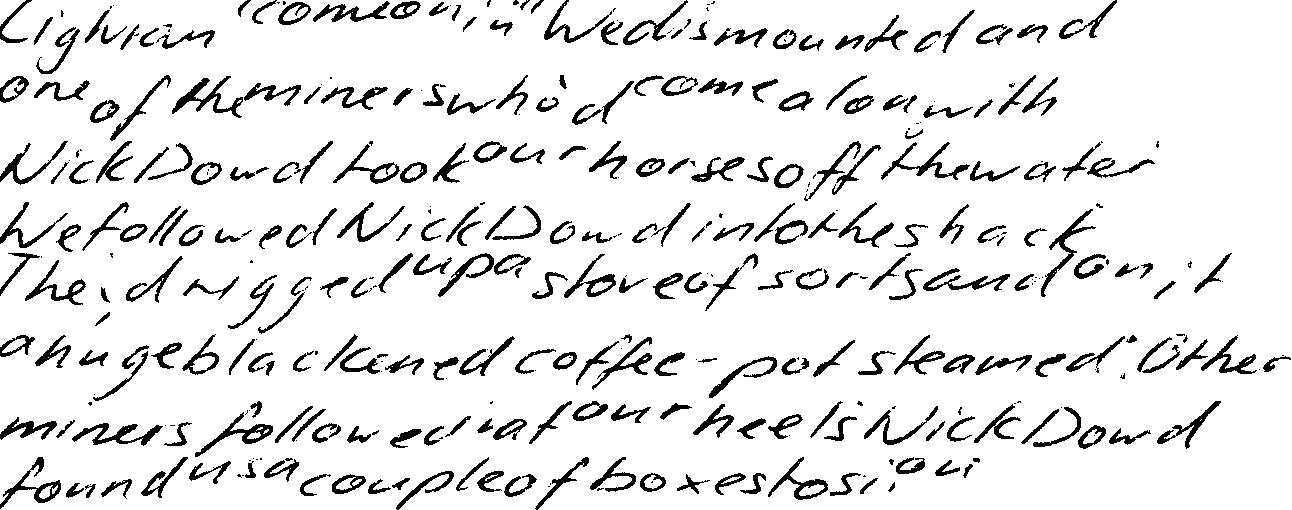 "Come on in" We dismounted and
one of the miners who'd come along with
Nick Dowd took our horses off the water
We followed Nick Dowd into the shack
They'd rigged up a stove of sorts and on it
a huge blackened coffee-pot steamed. Other
miners followed in at our heels Nick Dowd
found us a couple of boxes to sit on